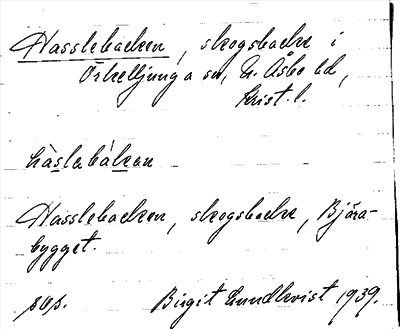 Hasslebacken, skogsbacke i
Örkelljunga sn, N. Åsbo hd,
Krist. l.
hàslabákan
Hasslebacken, skogsbacke, Bjära-
bygget.
Birgit Lundkvist 1939.